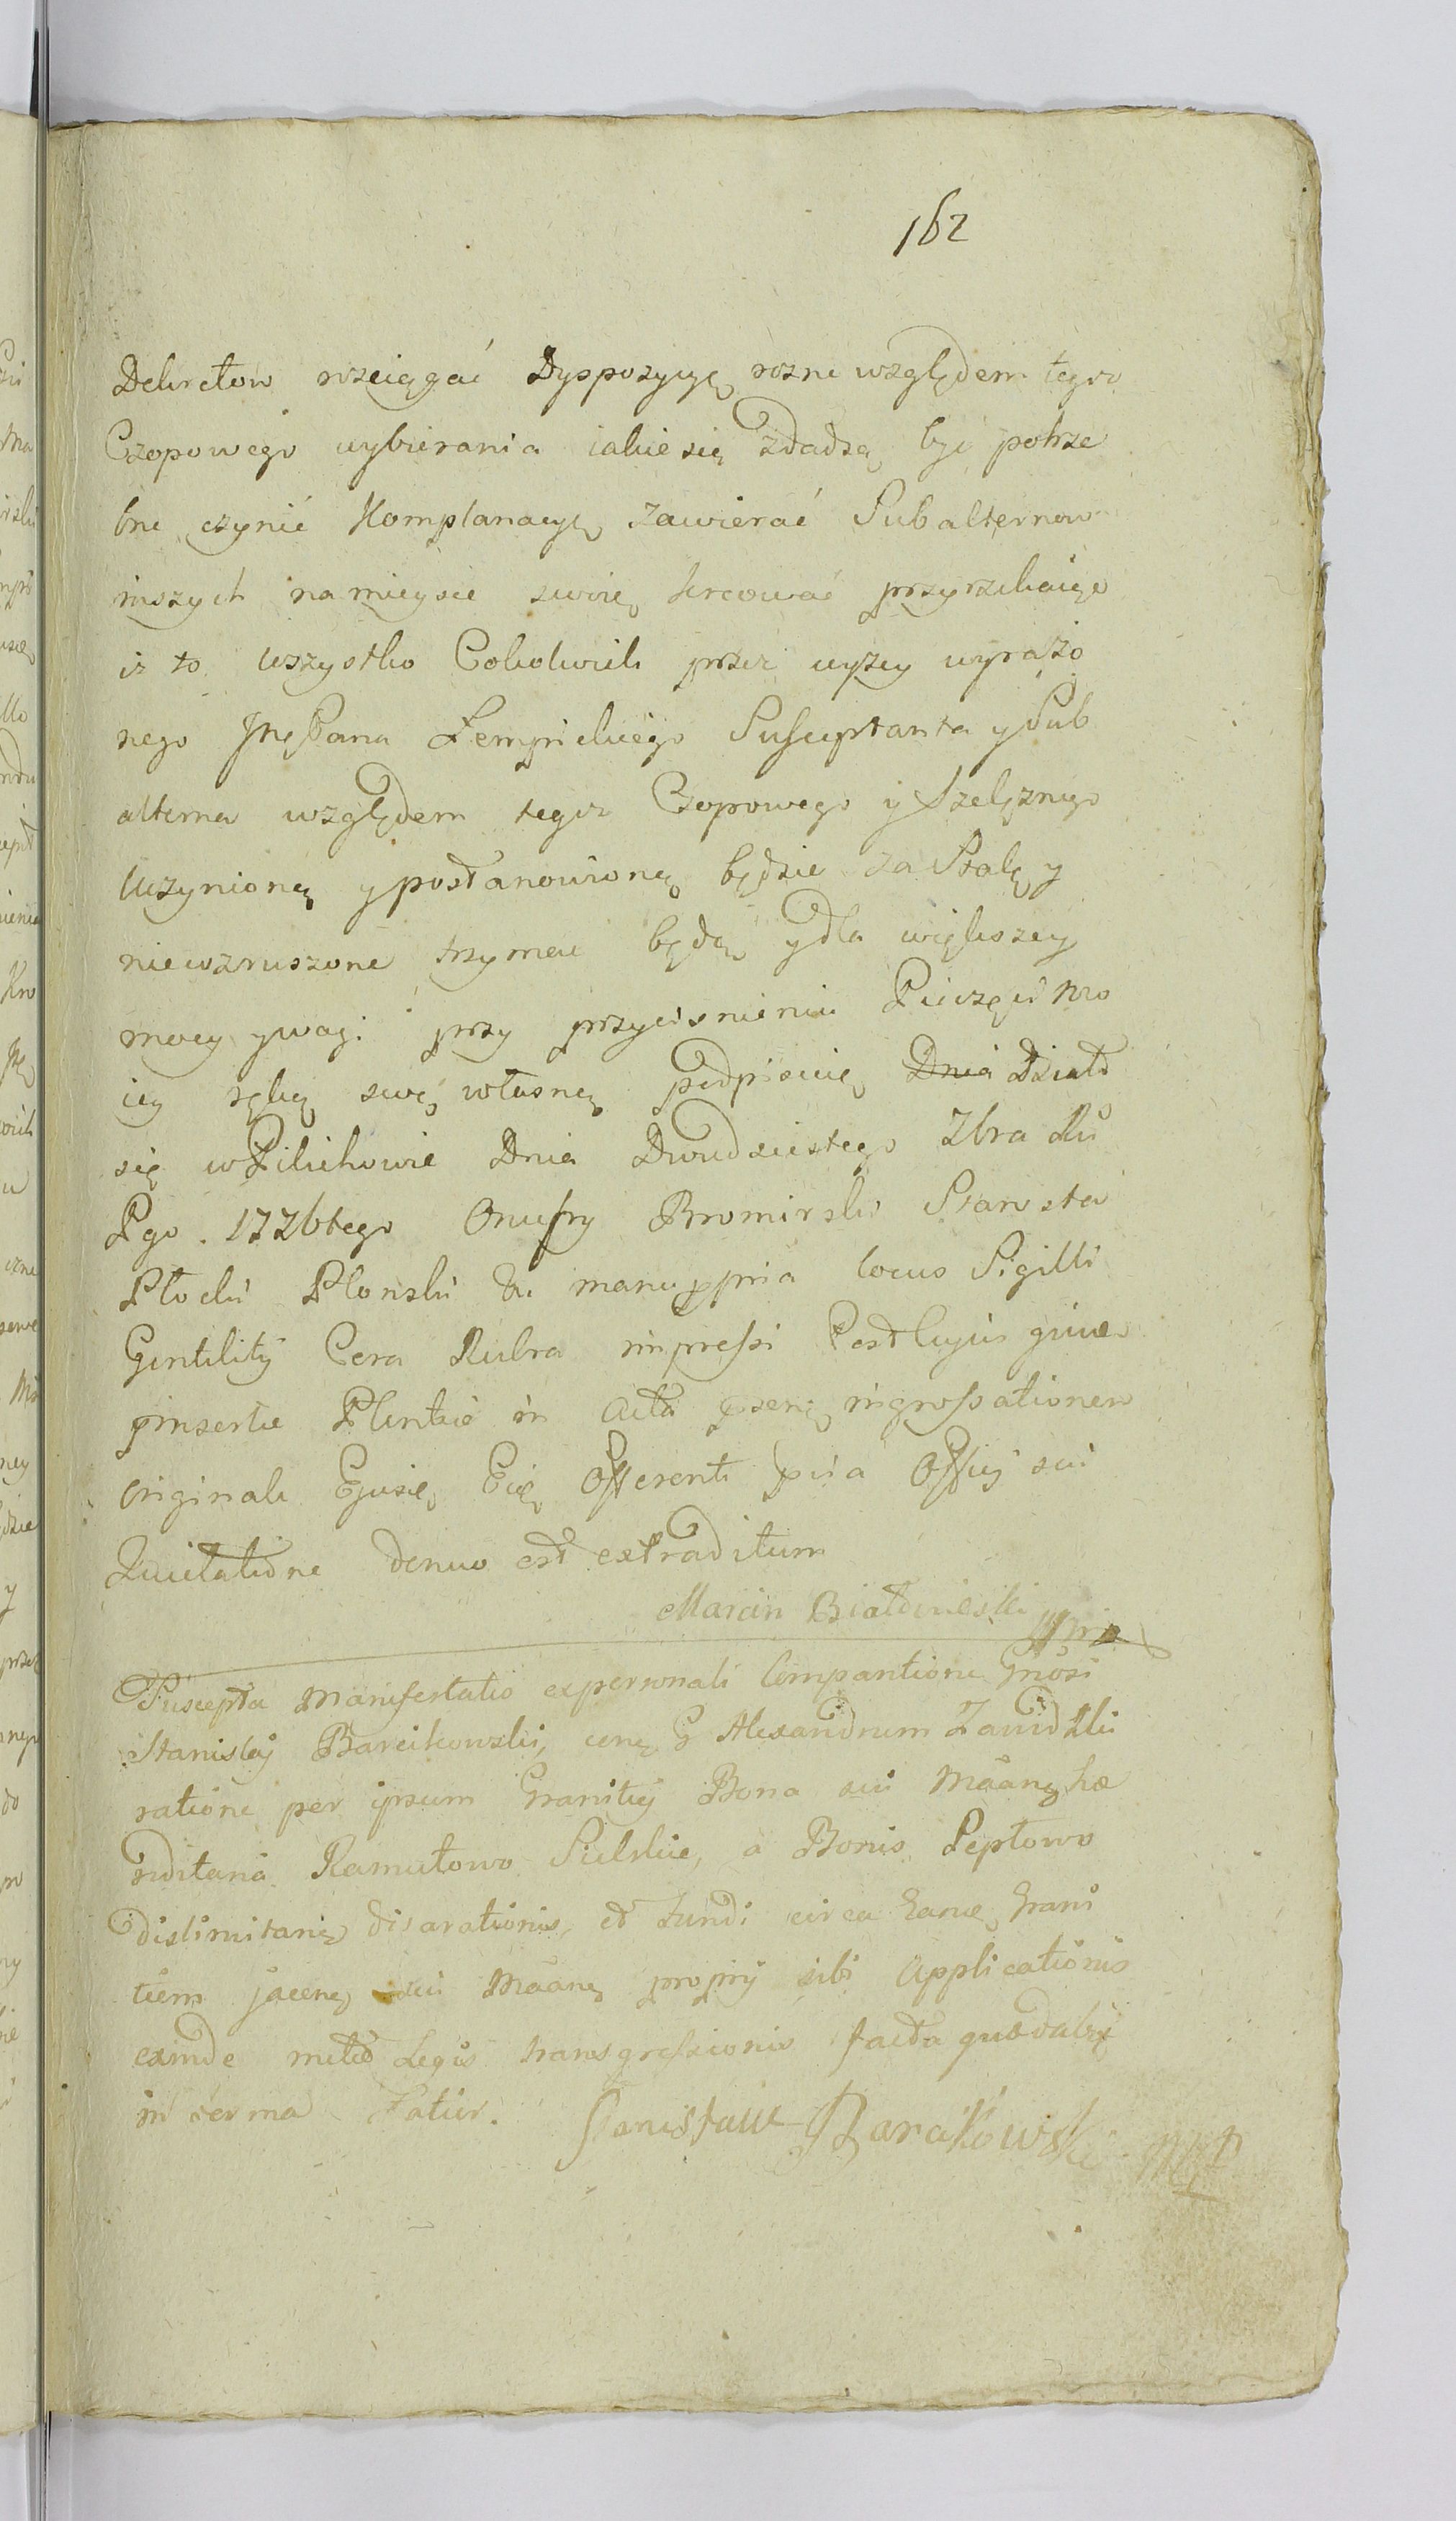 162
Dekretow rozciągać Dyspozycyę rozne względem tegoż
Czopowego wybierania iakie się zdadzą być potrze
bne czynić Komplanacyę zawierać Subalternow
inszych na mieysce swoie kreować przyrzekaiąc
iż to wszystko Cokolwiek przez wyzey wyrażo
nego Pana Łempickiego Susceptanta y Sub
alterna względem tegoż Czopowego y Szelęznego
Uczynioną y postanowioną będzie za Stałę y
niewzruszone trzymać będę y dla większey
mocy y wagi przy przycisnieniu Pieczęci mo
iey ręką swą własną podpisuię Dnia Działo
się w Pilichowie Dnia Dwudziestego 7bra Ru
Pgo. 1776tego Onufry Bromirski Starosta
Płocki Plonski manu ppria locus Sigilli
Gentilitij Cera Rubra impressi Post cujus
insertae Plentae in Acta ingrossationem
originale Offerenti Officij sui
Quietatione denuo est extraditum
Marcin Białowieski mpria
Suscepta Manifestatio ex personali Comparitione Gnosi
Stanislaj Barcikowski, G Alexandrum Zawidzki
ratione per ipsum Granitiej Bona sui hae
reditaria Ramutowo Sulskie, a Bonis Peptowo
disarationis, et fundi circa Grani
tiem jacen sui proprij sibi Applicationis
exinde Legis transgressionis facta
in term Fatur. Stanisław Barcikowski MP